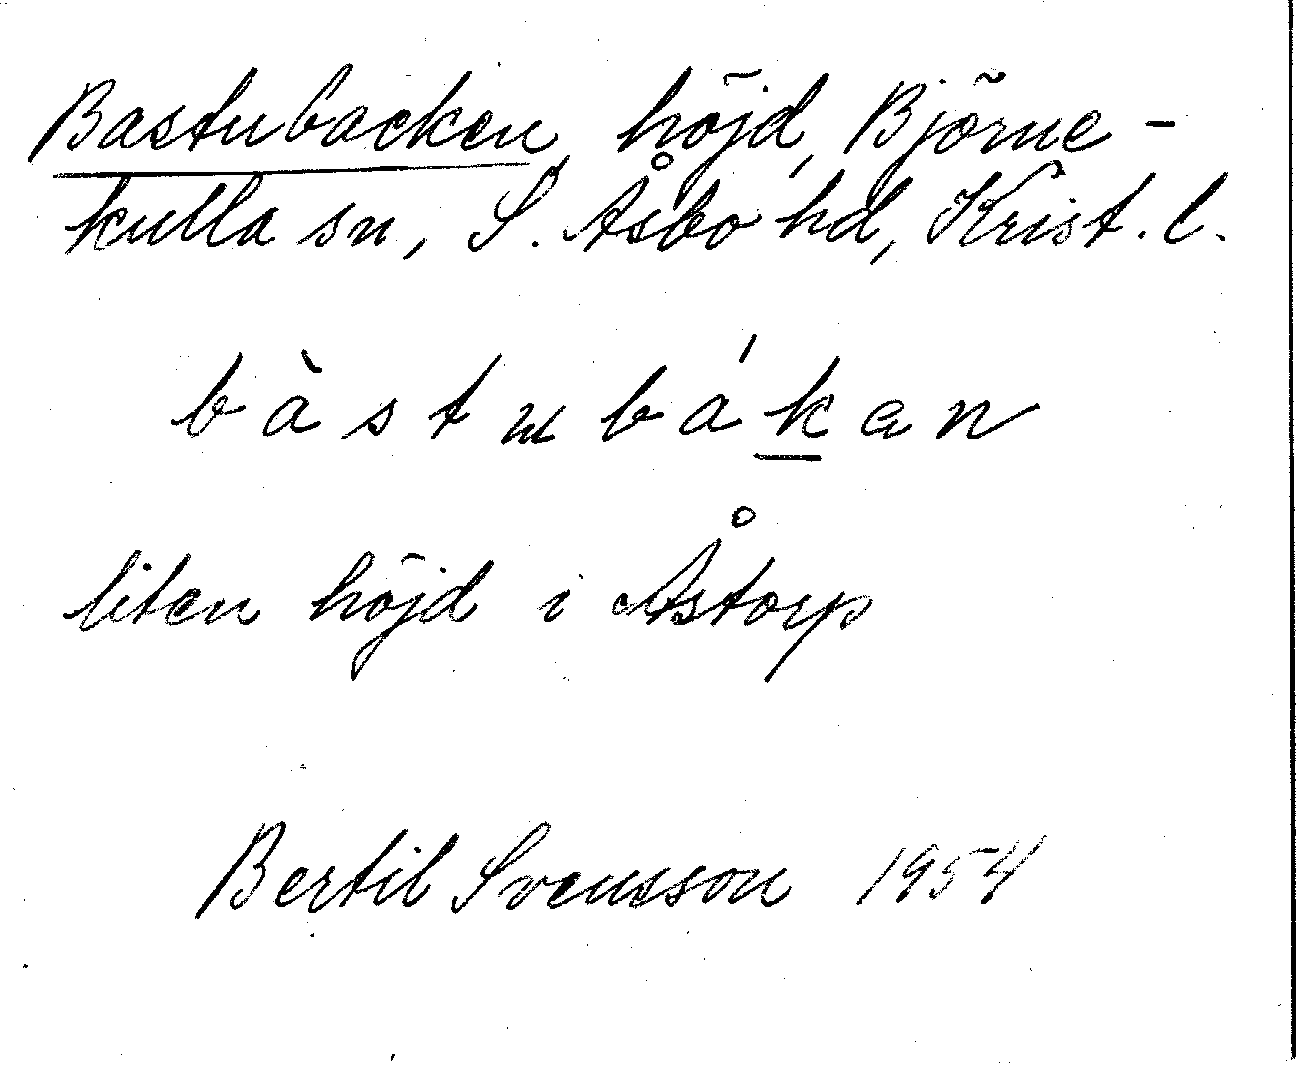 Bastubacken, höjd, Björne-
kulla sn, S. Åsbo hd, Krist. l.
bàstɯbá́k̲ən
liten höjd i Åstorp
Bertil Svensson 1954